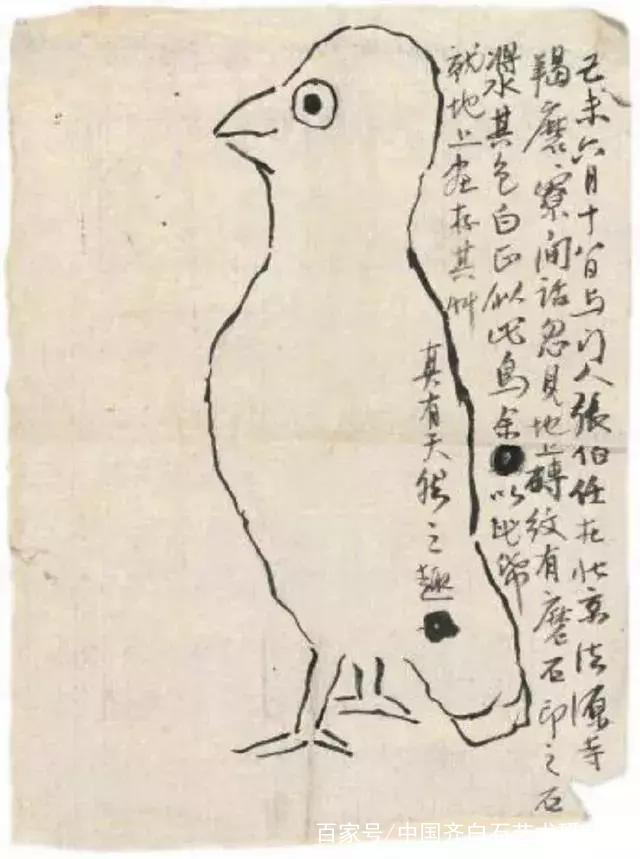 己未六月十八日与门人張伯任在北京法源寺
羯磨寮间話忽見地上磚紋有磨石印之石
漿其色白正似此鳥余以此帋
就地上画存其艸
真有天然之趣
百家号/中国齐白石艺术研